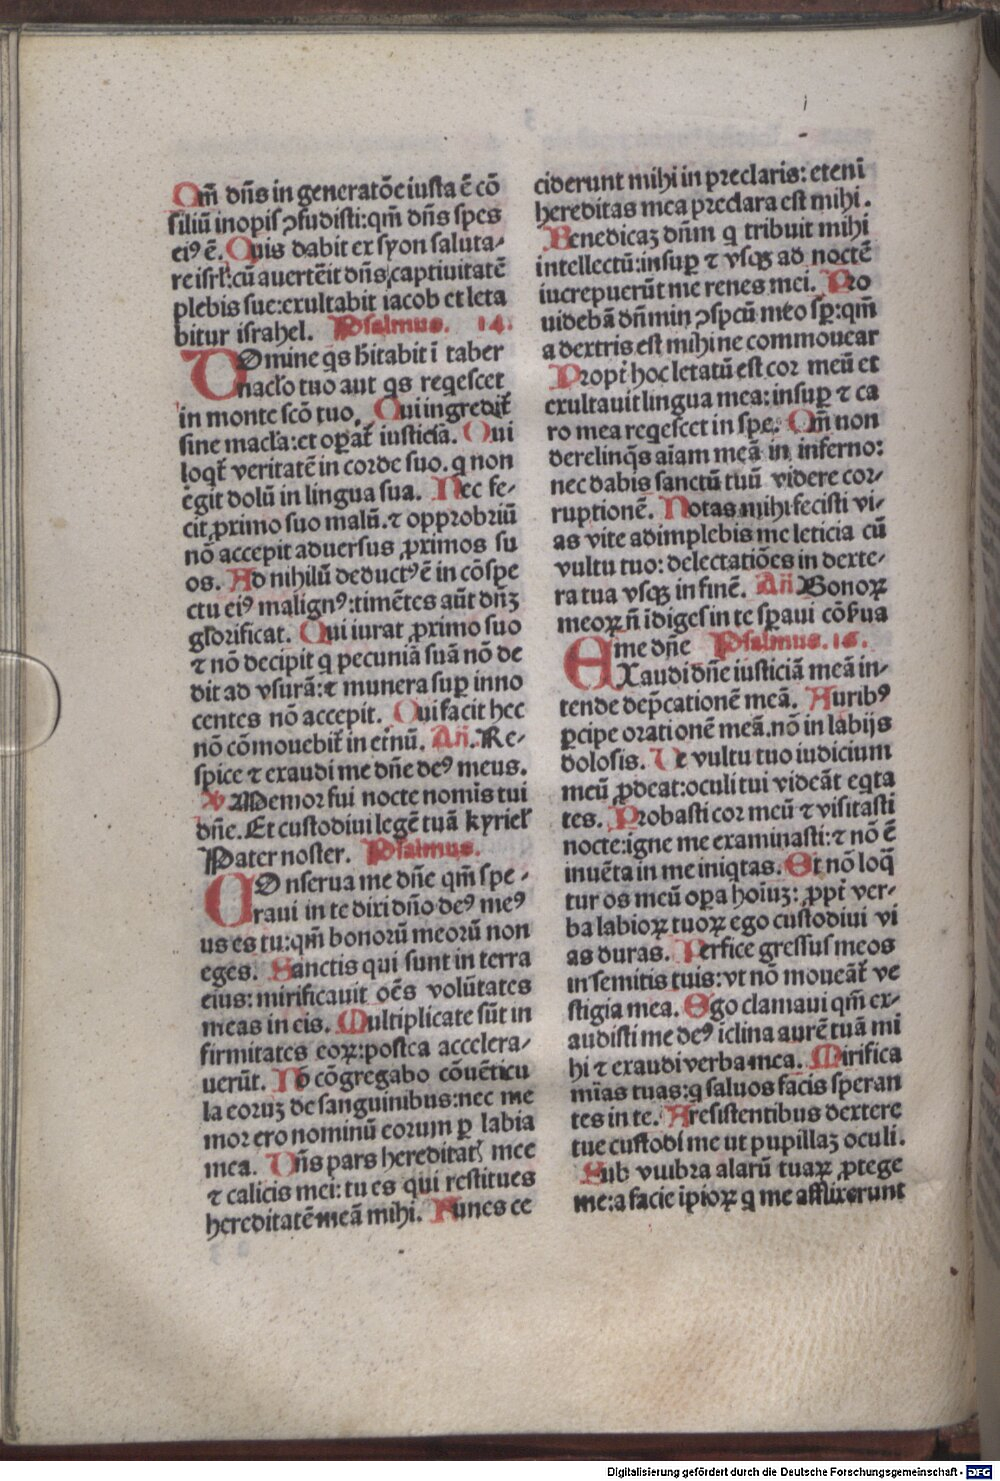 Qm̄ dn̄s in generatōe iusta ē cō
siliū inopis ꝯfudisti:qm̄ dn̄s spes
eiꝰ ē. Quis dabit ex syon saluta-
re isrl̓:cū auertēit dn̄s captiuitatē
plebis sue:exultabit iacob et leta
bitur israhel. Psalmus. 14.
DOmine qs hītabit ī taber
nacl̓o tuo aut qs reqescet
in monte scō tuo. Qui ingredit̄
sine macl̓a:et oꝑat̄ iusticīa. Qui
loqt̄ veritatē in corde suo. q non
egit dolū in lingua sua. Nec fe-
cit ꝓximo suo malū. ⁊ opprobriū
nō accepit aduersus ꝓximos su
os. Ad nihilū deductꝰ ē in cōspe
ctu eiꝰ malignꝰ:timētes aūt dn̄ʒ
glorificat. Qui iurat ꝓximo suo
⁊ nō decipit q pecuniā suā nō de
dit ad vsurā:⁊ munera suꝑ inno
centes nō accepit. Qui facit hec
nō cōmouebit̄ in et̓nū. An̄. Re-
spice ⁊ exaudi me dn̄e deꝰ meus.
℣ Memor fui nocte nomīs tui
dn̄e. Et custodiui legē tuā kyriel̓
Pater noster. Psalmus.
COnserua me dn̄e qm̄ spe-
raui in te dixi dn̄o deꝰ meꝰ
us es tu:qm̄ bonorū meorū non
eges. Sanctis qui sunt in terra
eius: mirificauit oēs volūtates
meas in eis. Multiplicate sūt in
firmitates eoꝝ:postea accelera-
uerūt. Nō cōgregabo cōuēticu
la eoruʒ de sanguinibus:nec me
mor ero nominū eorum ꝑ labia
mea. Dn̄s pars hereditat̄ mee
⁊ calicis mei: tu es qui restitues
hereditatē meā mihi. Funes ce
ciderunt mihi in preclaris: etenī
hereditas mea preclara est mihi.
Benedicaʒ dn̄m q tribuit mihi
intellectū:insuꝑ ⁊ vsqʒ ad noctē
iucrepuerūt me renes mei. Pro
uidebā dn̄min ꝯspcū meo sꝑ:qm̄
a dextris est mihi ne commouear
Propt̄ hoc letatū est cor meū et
exultauit lingua mea:insuꝑ ⁊ ca
ro mea reqescet in spe. Qm̄ non
derelinq̄s aīam meā in inferno:
nec dabis sanctū tuū videre cor-
ruptionē. Notas mihi fecisti vi-
as vite adimplebis me leticia cū
vultu tuo: delectatiōes in dexte-
ra tua vsqʒ in finē. An̄ Bonoꝝ
meoꝝ n̄ īdiges in te sꝑaui cōẜua
me dn̄e Psalmus. 16.
EXaudi dn̄e iusticiā meā in-
tende dep̄cationē meā. Auribꝰ
ꝑcipe orationē meā. nō in labijs
dolosis. De vultu tuo iudicium
meū ꝓdeat:oculi tui videāt eqta
tes. Probasti cor meū ⁊ visitasti
nocte:igne me examinasti:⁊ nō ē
inuēta in me iniqtas. Et nō loq̄
tur os meū oꝑa hoīuʒ: ꝓpt̄ ver-
ba labioꝝ tuoꝝ ego custodiui vi
as duras. Perfice gressus meos
in semitis tuis:vt nō moueāt̄ ve
stigia mea. Ego clamaui qm̄ ex-
audisti me deꝰ īclina aurē tuā mi
hi ⁊ exaudi verba mea. Mirifica
mīas tuas:q saluos facis speran
tes in te. A resistentibus dextere
tue custodi me ut pupillaʒ oculi.
Sub vmbra alarū tuaꝝ ꝓtege
me:a facie īpioꝝ q me afflixerunt
Digitalisierung gefördert durch die Deutsche Forschungsgemeinschaft - DFG